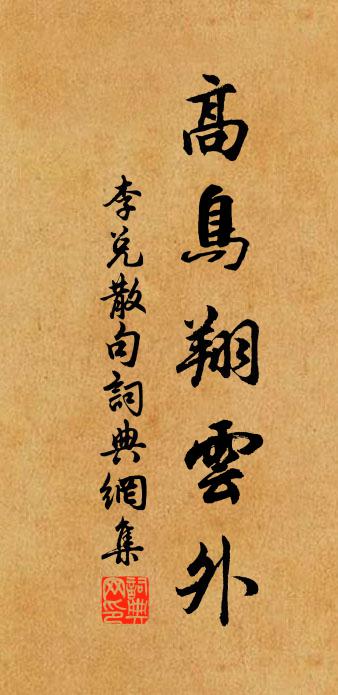 高鳥翔雲外
李兌散句詞典網集
詞典
网印